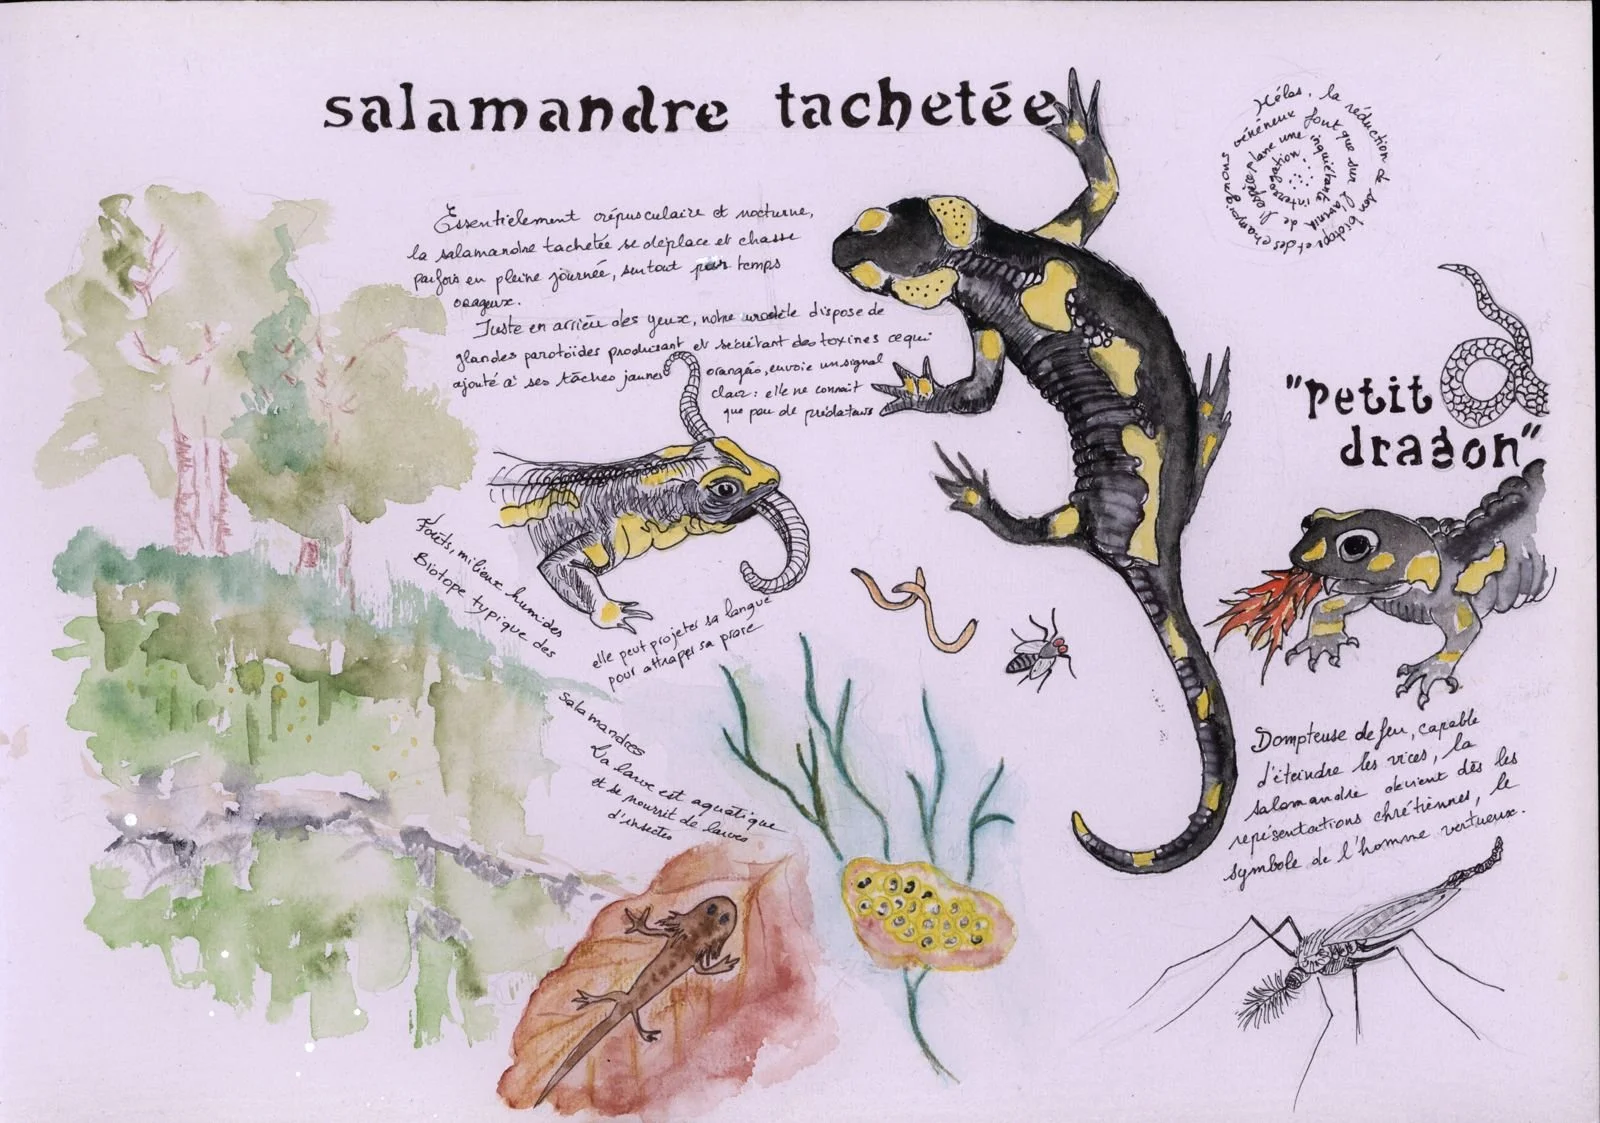 salamandre tachetée
Essentiellement crépusculaire et nocturne,
la salamandre tachetée se déplace et chasse
parfois en pleine journée, surtout par temps
orageux.
Juste en arrière des yeux, notre urodèle dispose de
glandes parotoïdes produisant et sécrétant des toxines ce qui
ajouté à ses tâches jaunes orangées, envoie un signal
clair : elle ne connait
que peu de prédateurs
Forêts, milieux humides
Biotope typique des
salamandres
elle peut projeter sa langue
pour attraper sa proie
La larve est aquatique
et se nourrit de larves
d'insectes
Hélas, la réduction de son biotope et des champignons vénéneux font que sur l'avenir de l'espèce plane une inquiétante interrogation
"Petit
dragon"
Dompteuse de feu, capable
d'éteindre les vices, la
salamandre devient dès les
représentations chrétiennes, le
symbole de l'homme vertueux.